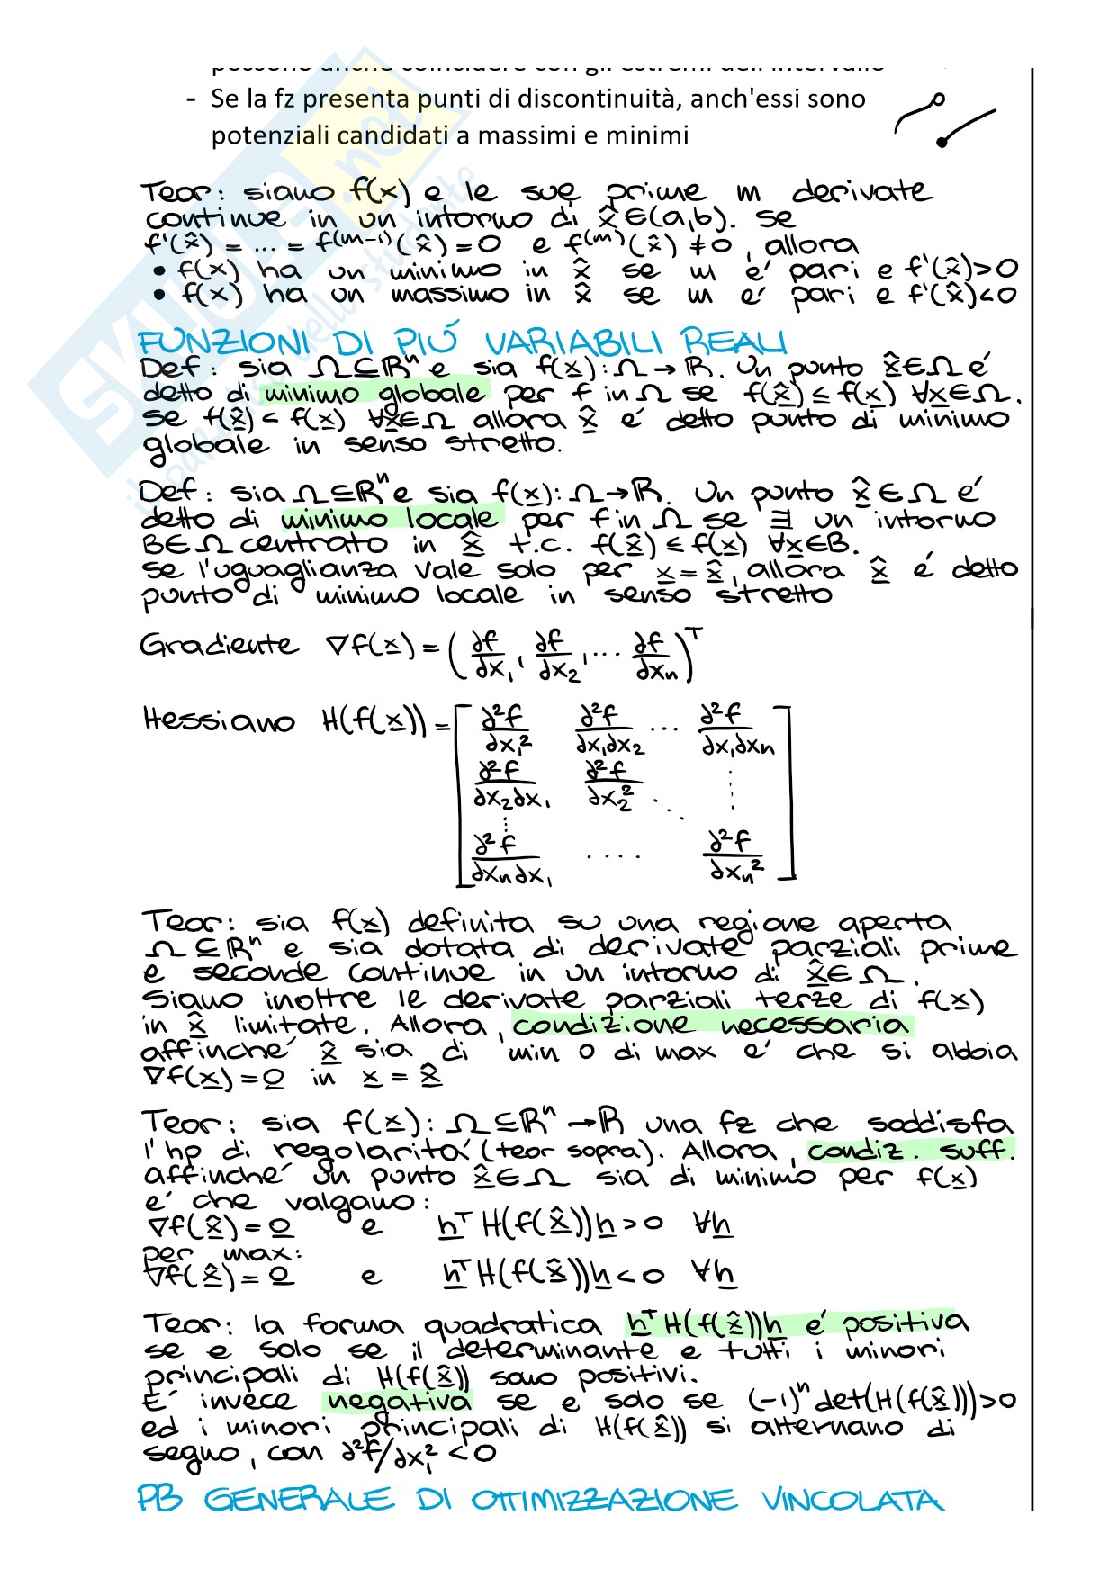 possono anche coincidere con gli estremi dell'intervallo
- Se la fz presenta punti di discontinuità, anch'essi sono
potenziali candidati a massimi e minimi
Teor: siano f(x) e le sue prime m derivate
continue in un intorno di x̂∈(a,b). Se
f'(x̂) = ... = f^(m-1)(x̂)=0 e f^(m)(x̂) ≠0, allora
• f(x) ha un minimo in x̂ se m é pari e f'(x̂)>0
• f(x) ha un massimo in x̂ se m é pari e f'(x̂)<0
FUNZIONI DI PIÚ VARIABILI REALI
Def: sia Ω⊆ℝⁿ e sia f(x): Ω→ℝ. Un punto x̂∈Ω é
detto di minimo globale per f in Ω se f(x̂) ≤ f(x) ∀x∈Ω.
Se f(x̂) < f(x) ∀x∈Ω allora x̂ é detto punto di minimo
globale in senso stretto.
Def: sia Ω⊆ℝⁿ e sia f(x): Ω→ℝ. Un punto x̂∈Ω é
detto di minimo locale per f in Ω se ∃ un intorno
B∈Ω centrato in x̂ t.c. f(x̂) ≤ f(x) ∀x∈B.
Se l'uguaglianza vale solo per x=x̂, allora x̂ é detto
punto di minimo locale in senso stretto
Gradiente ∇f(x) = (∂f/∂x₁, ∂f/∂x₂, ... ∂f/∂xₙ)ᵀ
Hessiano H(f(x)) = [ ∂²f/∂x₁² ∂²f/∂x₁∂x₂ ... ∂²f/∂x₁∂xₙ
∂²f/∂x₂∂x₁ ∂²f/∂x₂² ⋱ ⋮
⋮
∂²f/∂xₙ∂x₁ .... ∂²f/∂xₙ² ]
Teor: sia f(x) definita su una regione aperta
Ω⊆ℝⁿ e sia dotata di derivate parziali prime
e seconde continue in un intorno di x̂∈Ω.
Siano inoltre le derivate parziali terze di f(x)
in x̂ limitate. Allora, condizione necessaria
affinché x̂ sia di min o di max é che si abbia
∇f(x)=0 in x = x̂
Teor: sia f(x): Ω⊆ℝⁿ→ℝ una fz che soddisfa
l'hp di regolaritá (teor sopra). Allora, condiz. suff.
affinché un punto x̂∈Ω sia di minimo per f(x)
é che valgano:
∇f(x̂)=0 e hᵀH(f(x̂))h>0 ∀h
per max:
∇f(x̂)=0 e hᵀH(f(x̂))h<0 ∀h
Teor: la forma quadratica hᵀH(f(x̂))h é positiva
se e solo se il determinante e tutti i minori
principali di H(f(x̂)) sono positivi.
É invece negativa se e solo se (-1)ⁿdet(H(f(x̂)))>0
ed i minori principali di H(f(x̂)) si alternano di
segno, con ∂²f/∂x₁²<0
PB GENERALE DI OTTIMIZZAZIONE VINCOLATA